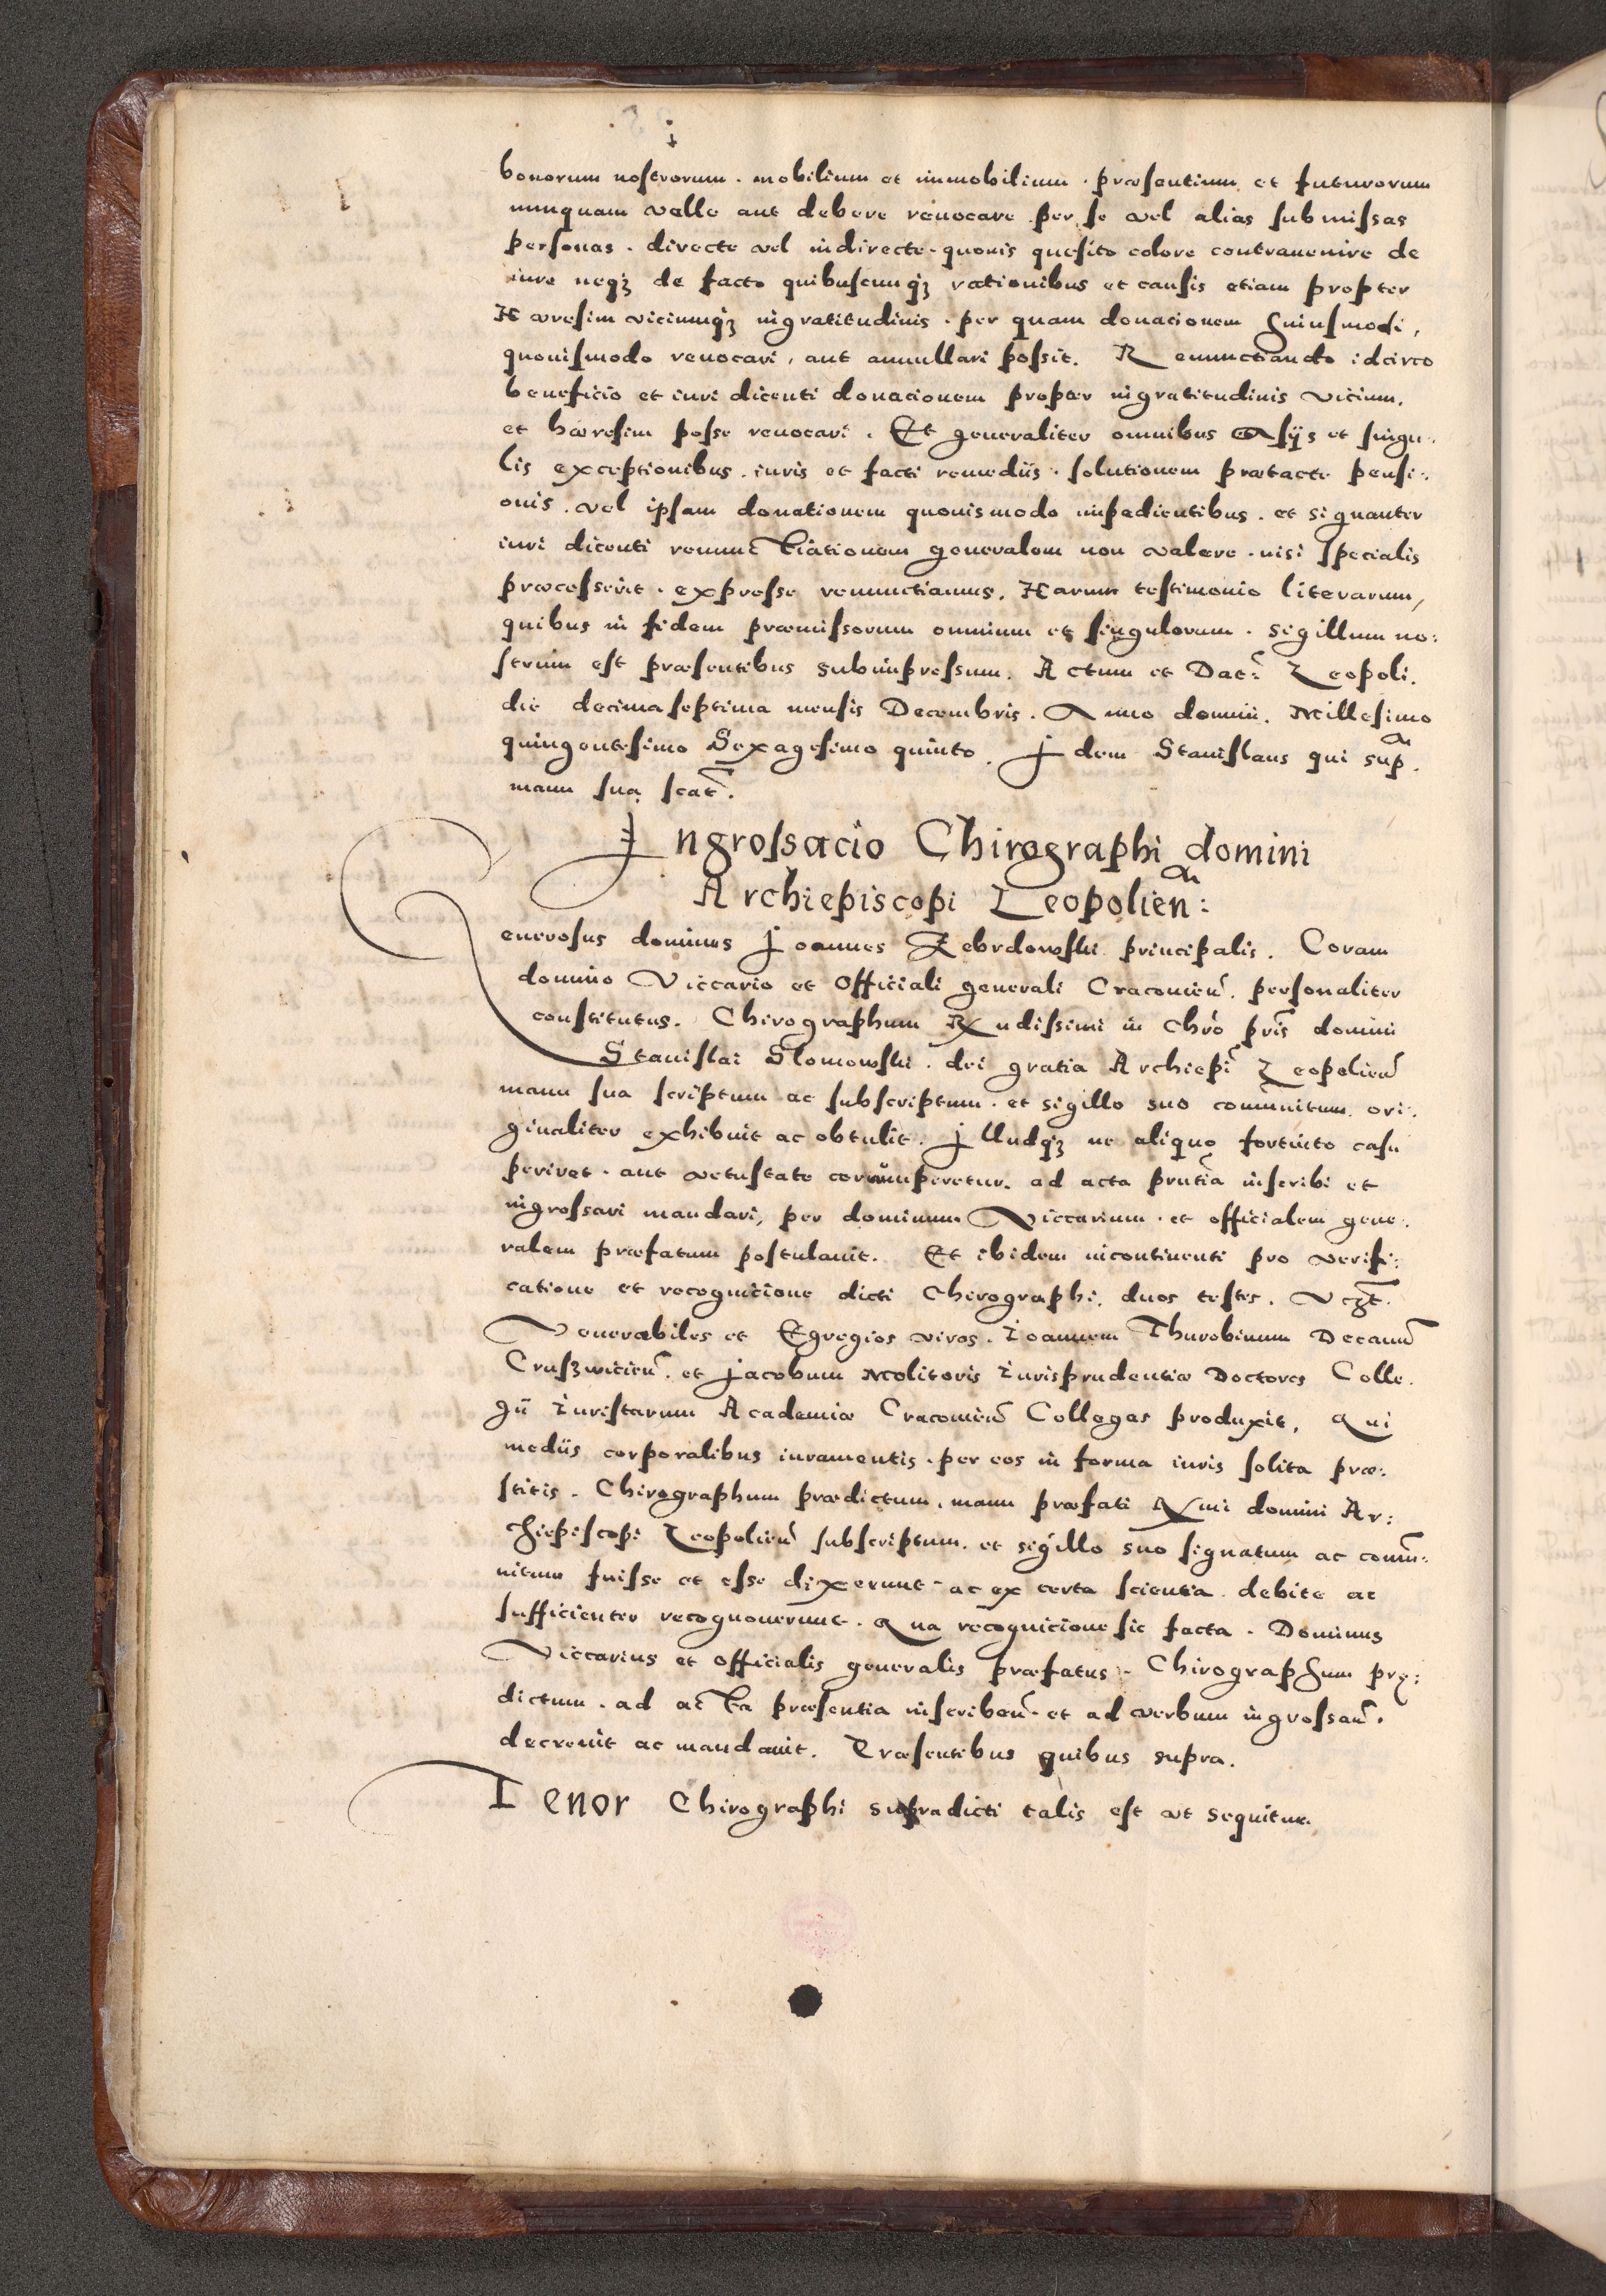 bonorum nostrorum . mobilium et immobilium . præsentium et futurorum
nunquam velle aut debere reuocare per se vel alias submissas
personas . directe vel indirecte . quouis quesito colore contrauenire de
iure neqȝ de facto quibuscunqȝ rationibus et causis etiam propter
Hæresim viciumqȝ ingratitudinis . per quam donacionem huiusmodi,
quouismodo reuocari, aut annullari possit. Renunctiando idcirco
beneficio et iuri dicenti donacionem propter ingratitudinis vicium.
et hæresim posse reuocari . Et generaliter omnibus alijs et singu:
lis exceptionibus . iuris et facti remediis . solutionem prætacte pensi:
onis . vel ipsam donationem quouismodo impedientibus . et signanter
iuri dicenti renunctiationem generalem non valere . nisi specialis
præcesserit . expresse renunctiamus. Harum testimonio literarum,
quibus in fidem præmissorum omnium et singulorum . sigillum no:
strum est præsentibus subimpressum. Actum et Dat: Leopoli.
die decima septima mensis Decembris. Anno domini. Millesimo
quingentesimo Sexagesimo quinto. Jdem Stanislaus qui sup̄.
manu sua sc̄at.
Jngrossacio Chirographi domini
Archiepiscopi Leopolien̄:
Generosus dominus Joannes Zebrdowski principalis. Coram
domino Viccario et Officiali generali Cracouien̄. personaliter
constitutus. Chirographum Rxndissimi in Chr̄o pr̄is domini
Stanislai Slomowski . dei gratia Archiepi̅ Leopolien̄
manu sua scriptum ac subscriptum . et sigillo suo com̄unitum ori:
ginaliter exhibuit ac obtulit. Jlludqȝ ne aliquo fortuito casu
periret . aut vetustate corrumperetur. ad acta pr̄ntia inscribi et
ingrossari mandari, per dominum Viccarium . et officialem gene:
ralem præfatum postulauit. Et ibidem incontinenti pro verifi:
catione et recognicione dicti Chirographi. duos testes. Vcȝt̄.
Venerabiles et Egregios viros. Joannem Thurobinum Decanum̄
Crusȝwicien̄. et Jacobum Molitoris Iurisprudentiæ Doctores Colle.
gii Iuristarum Academiæ Cracouien̄ Collegas produxit. Qui
mediis corporalibus iuramentis . per eos in forma iuris solita præ:
stitis . Chirographum prædictum . manu præfati Rxmi domini Ar:
chiepiscopi Leopolien̄ subscriptum . et sigillo suo signatum ac com̄u:
nitum fuisse et esse dixerunt . ac ex certa scientia debite ac
sufficienter recognouerunt . Qua recognicione sic facta . Dominus
Viccarius et Officialis generalis præfatus . Chirographum prę:
dictum . ad acta præsentia inscriben̄ . et ad verbum ingrossan̄.
decreuit ac mandauit. Præsentibus quibus supra.
Tenor Chirographi supradicti talis est vt sequitur.